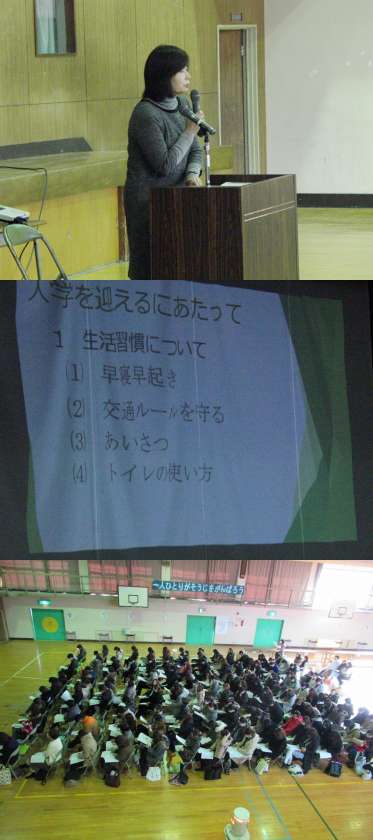 入学を迎えるにあたって
1 生活習慣について
(1) 早寝早起き
(2) 交通ルールを守る
(3) あいさつ
(4) トイレの使い方
一人ひとりがそうじをがんばろう